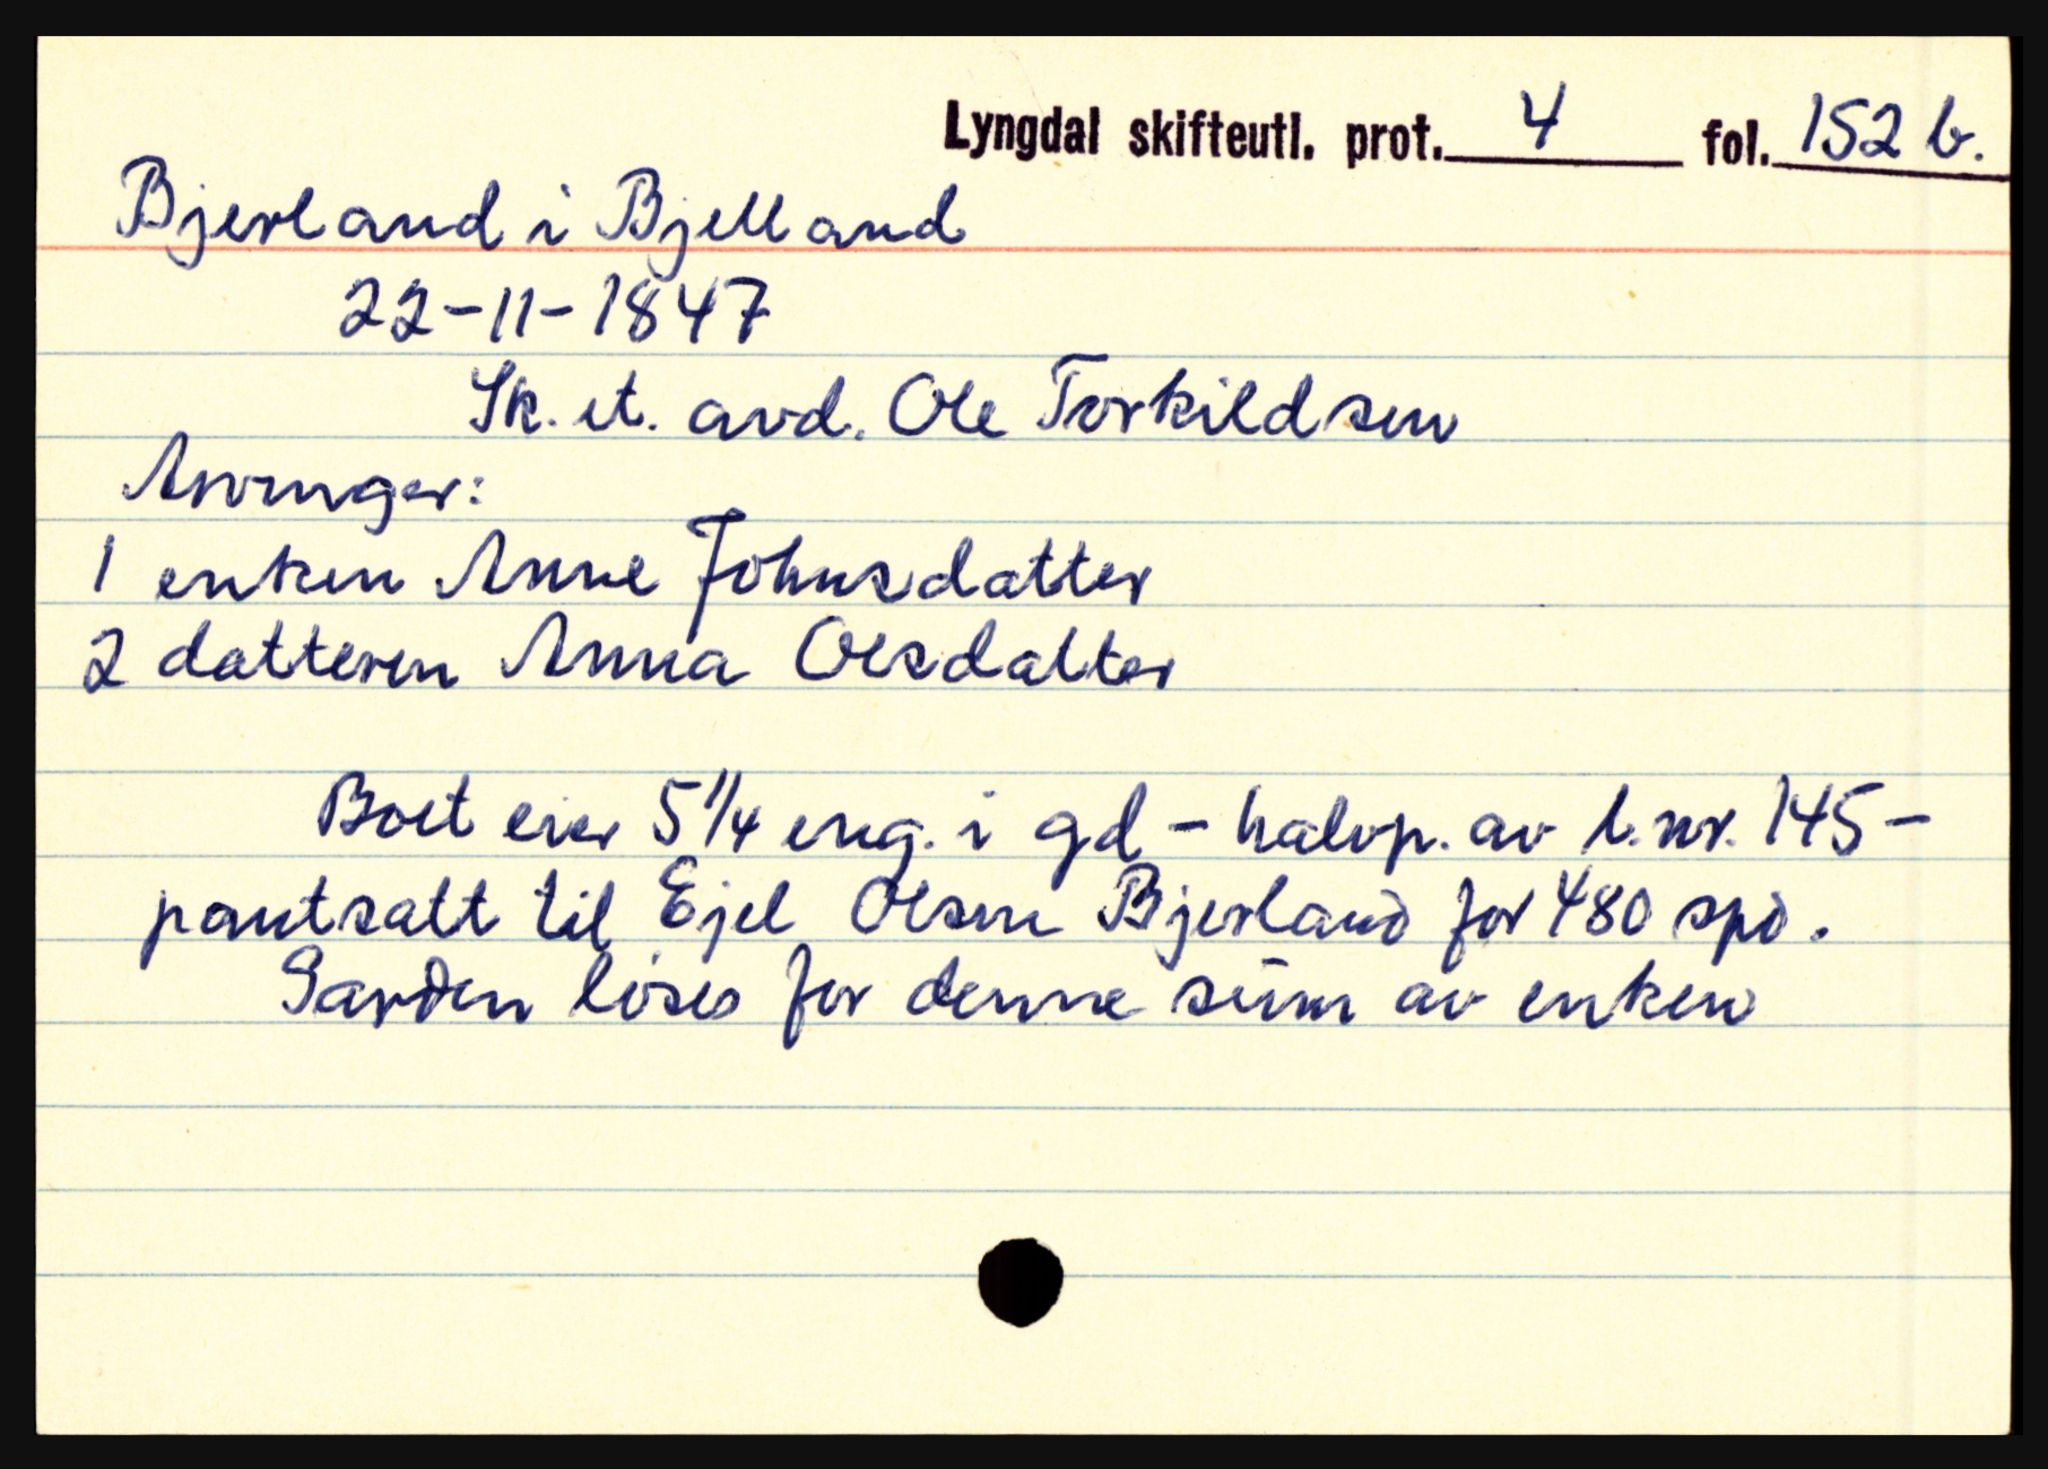 Lyngdal skifteutl. prot. 4 fol. 152 b.
Bjerland i Bjelland
22-11-1847
Sk. et. avd. Ole Torkildsen
Arvinger:
1 enken Anne Johnsdatter
2 datteren Anna Olsdatter
Boet eier 5 1/4 eng. i gd - halvp. av l.nr. 145 -
pantsatt til Ejel Olsen Bjerland for 480 spd.
Garden löses for denne sum av enken